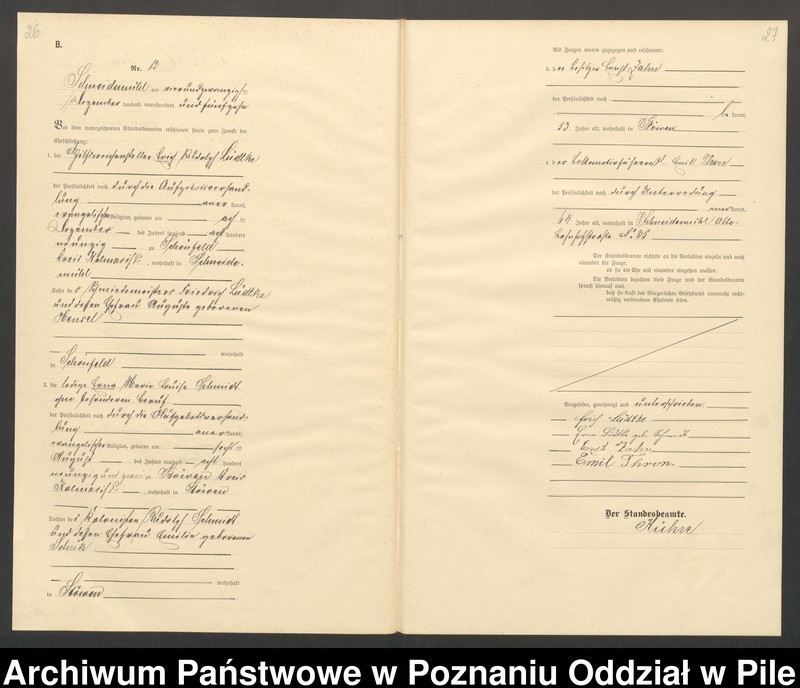 26
B.
Nr. 12
Schneidemühl am vierundzwanzigsten
Dezember tausend neunhundert und fünfzehn
Vor dem unterzeichneten Standesbeamten erschienen heute zum Zwecke der
Eheschließung:
1. der Erich Rudolph Lüdtke
der Persönlichkeit nach durch die Aufgebotsverhand-
lung anerkannt,
evangelischer Religion, geboren am
Dezember des Jahres tausend acht hundert
neunzig zu Schönfeld
Kreis Kolmar i/P., wohnhaft in Schneide-
mühl
Sohn des Schmiedemeisters Friedrich Lüdtke
und dessen Ehefrau Auguste geborenen
Hensel
wohnhaft
in Schönfeld
2. die ledige Erna Marie Louise Schmidt
ohne besonderen Beruf
der Persönlichkeit nach durch die Aufgebotsverhand-
lung anerkannt,
evangelischer Religion, geboren am
August des Jahres tausend acht hundert
zu Stöwen Kreis
Kolmar i/P., wohnhaft in Stöwen
Tochter des Kolonisten Rudolph Schmidt
und dessen Ehefrau Emilie geborenen
wohnhaft
in Stöwen
27
Als Zeugen waren zugezogen und erschienen:
3. der Besitzer Ernst Zahn
der Persönlichkeit nach
bekannt,
53 Jahre alt, wohnhaft in Stöwen
4. der Lokomotivführer Emil Thron
der Persönlichkeit nach durch Unterredung
anerkannt,
64 Jahre alt, wohnhaft in Schneidemühl Alte
Bahnhofstraße No
Der Standesbeamte richtete an die Verlobten einzeln und nach
einander die Frage:
ob sie die Ehe mit einander eingehen wollen.
Die Verlobten bejahten diese Frage und der Standesbeamte
sprach hierauf aus,
daß sie kraft des Bürgerlichen Gesetzbuchs nunmehr recht-
mäßig verbundene Eheleute seien.
Vorgelesen, genehmigt und unterschrieben
Erich Lüdtke
Erna Lüdtke geb. Schmidt
Ernst Zahn
Emil Thron.
Der Standesbeamte.
Archiwum Państwowe w Poznaniu Oddział w Pile